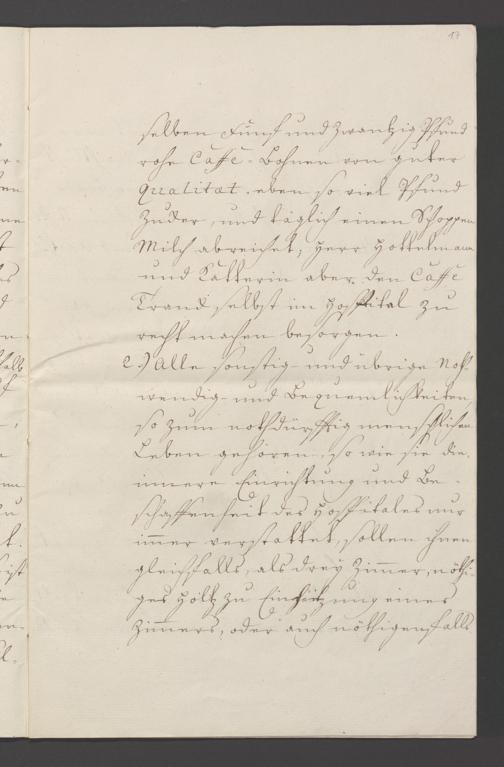 17
selben Fünf und zwantzig Pfund
rohe Caffe-Bohnen von guter
Qualitæt, eben so viel Pfund
Zucker, und täglich einen Schoppen
Milch abreichet, Herr Hottelmann
und Katterin aber den Caffe
Tranck selbst im Hospital zu
recht machen besorgen.
e.) Alle sonstig- und übrige Noth-
wendig- und Bequemlichkeiten,
so zum nothdürfftig menschlichen
Leben gehören, so wie sie die
innere Einrichtung und Be-
schaffenheit des Hospitales nur
immer verstattet, sollen ihnen
gleichfalls, als drey Zimmer, nöthi-
ges Höltz zu Einheitzung eines
Zimmers, oder auch nöthigenfalls